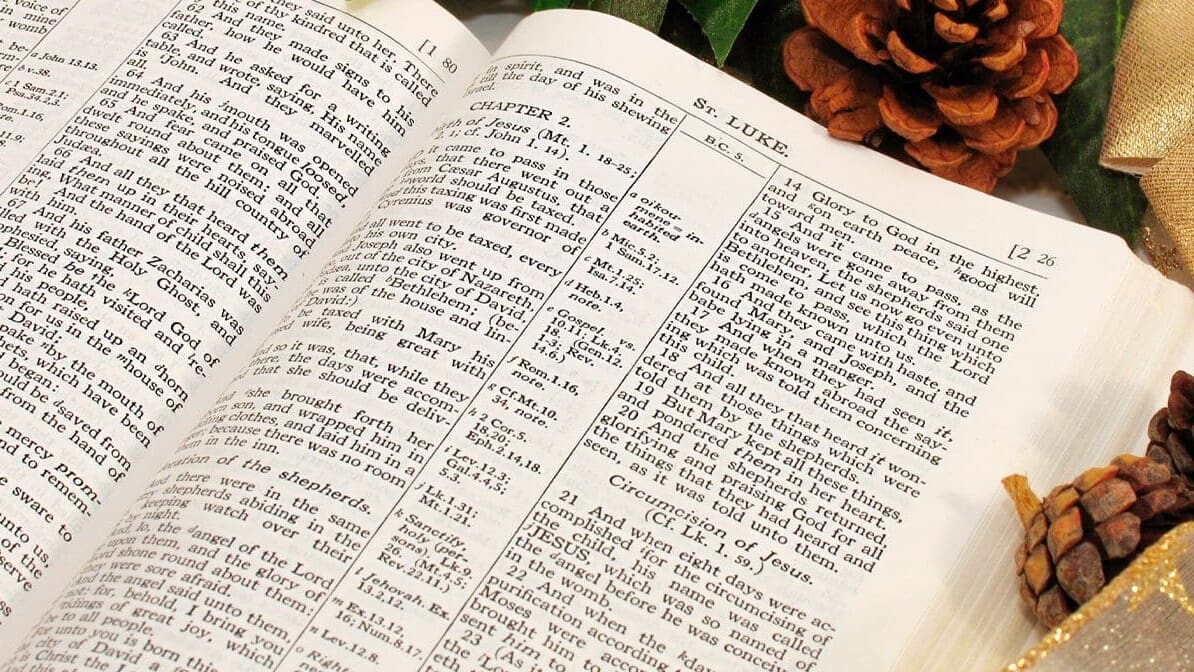 voice of
of mine
womb
a John 13.13.
b v.38.
1 Sam.2.1;
Psa.34.2,3.
[1 80
they said unto her, There
of thy kindred that is called
this name.
62 And they made signs to his
father, how he would have him
called.
63 And he asked for a writing
table, and wrote, saying, His name
is John. And they marvelled
all.
64 And his mouth was opened
immediately, and his tongue loosed,
and he spake, and praised God.
65 And fear came on all that
dwelt round about them: and all
these sayings were noised abroad
throughout all the hill country of
Judaea.
66 And all they that heard them
laid them up in their hearts, say-
ing, What manner of child shall this
be! And the hand of the Lord was
with him.
67 And his father Zacharias was
filled with the Holy Ghost, and
prophesied, saying,
Blessed be the Lord God of
for he hath visited and re-
his people,
hath raised up an horn
for us in the house of
David;
spake by the mouth of
prophets, which have been
began:
should be saved from
from the hand of
mercy prom-
and to remem-
he sware to
unto us,
ST. LUKE.
[2 26
in spirit, and was in the
till the day of his shewing
Israel.
CHAPTER 2.
Birth of Jesus (Mt. 1. 18-25;
1; cf. John 1. 14).
it came to pass in those
days, that there went out a
from Cæsar Augustus, that
world should be taxed.
this taxing was first made
Cyrenius was governor of
all went to be taxed, every
his own city.
Joseph also went up from
out of the city of Nazareth,
Judæa, unto the city of David,
is called Bethlehem; (be-
was of the house and lin-
David:)
be taxed with Mary his
wife, being great with
And so it was, that, while they
there, the days were accom-
that she should be deliv-
And she brought forth her
born son, and wrapped him in
swaddling clothes, and laid him in a
because there was no room
them in the inn.
Adoration of the shepherds.
And there were in the same
shepherds abiding in the
keeping watch over their
by night.
And, lo, the angel of the Lord
upon them, and the glory of
Lord shone round about them:
they were sore afraid.
And the angel said unto them,
not: for, behold, I bring you
tidings of great joy, which
be to all people.
For unto you is born this
city of David a
is Christ the L
B.C. 5.
a oikou-
mene = in-
habited
earth.
b Mic.5.2;
1 Sam.17.12.
c Mt.1.25;
Isa.7.14.
d Heb.1.4,
note.
e Gospel. vs.
10,11; Lk.4.
18. (Gen.12.
1-3; Rev.
14.6.)
f Rom.1.16,
note.
g Cf.Mt.10.
34, note.
h 2 Cor.5.
18,20;
Eph.2.14,18.
i Lev.12.3;
Gal.4.4,5;
5.3.
j Lk.1.31;
Mt.1.21.
k Sanctify,
holy (per-
sons) (Mt.4.5;
Rev.22.11.)
l Jehovah. Ex.
13.2,12.
m Ex.13.12,
16; Num.8.17.
n Lev.12.8.
o Right
14 Glory to God in the highest,
and on earth peace, good will
toward men.
15 And it came to pass, as the
angels were gone away from them
into heaven, the shepherds said one
to another, Let us now go even unto
Bethlehem, and see this thing which
is come to pass, which the Lord
hath made known unto us.
16 And they came with haste, and
found Mary, and Joseph, and the
babe lying in a manger.
17 And when they had seen it,
they made known abroad the say-
ing which was told them concerning
this child.
18 And all they that heard it won-
dered at those things which were
told them by the shepherds.
19 But Mary kept all these things,
and pondered them in her heart.
20 And the shepherds returned,
glorifying and praising God for all
the things that they had heard and
seen, as it was told unto them.
Circumcision of Jesus.
(Cf. Lk. 1. 59.)
21 And when eight days were ac-
complished for the circumcising of
the child, his name was called
JESUS, which was so named of
the angel before he was conceived
in the womb.
22 And when the days of
purification according
Moses were accom
brought him
sent him to
23 (As it